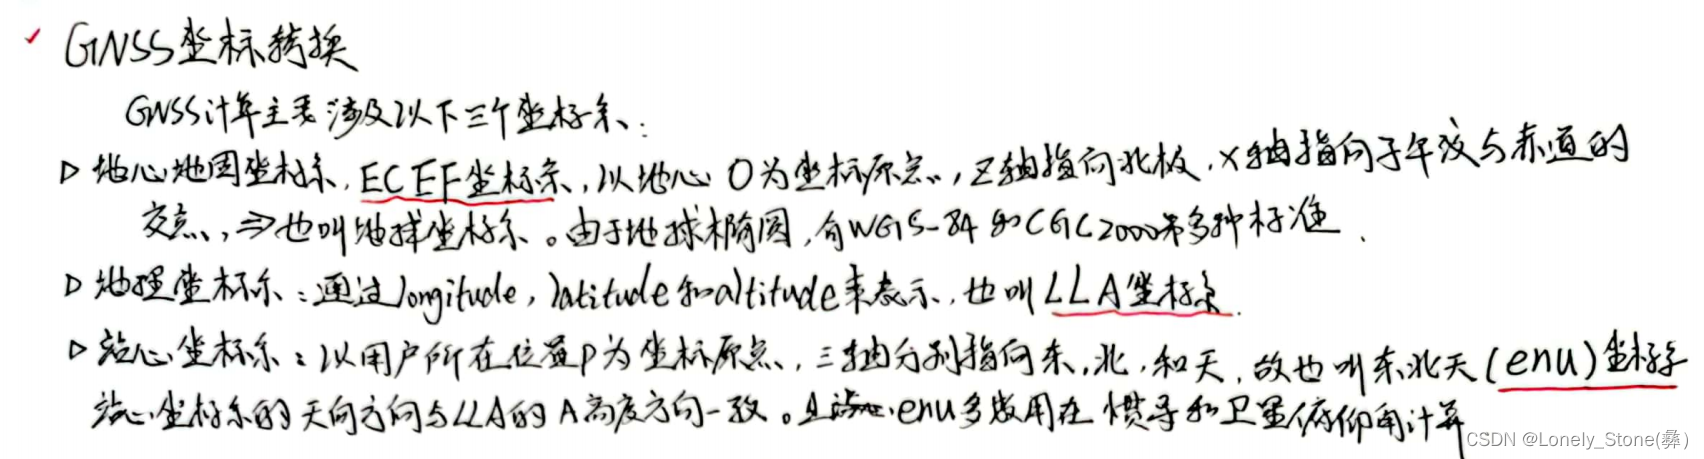 GNSS坐标转换
GNSS计算主要涉及以下三个坐标系:
▷ 地心地固坐标系,ECEF坐标系,以地心O为坐标原点,Z轴指向北极,X轴指向子午线与赤道的
交点,⇒也叫地球坐标系。由于地球椭圆,有WGS-84和CGC2000等多种标准.
▷ 地理坐标系:通过longitude,latitude和altitude来表示,也叫LLA坐标系.
▷ 站心坐标系:以用户所在位置P为坐标原点,三轴分别指向东,北,和天,故也叫东北天(enu)坐标系
站心坐标系的天向方向与LLA的A高度方向一致。enu多数用在惯导和卫星俯仰角计算
CSDN @Lonely_Stone(彝)